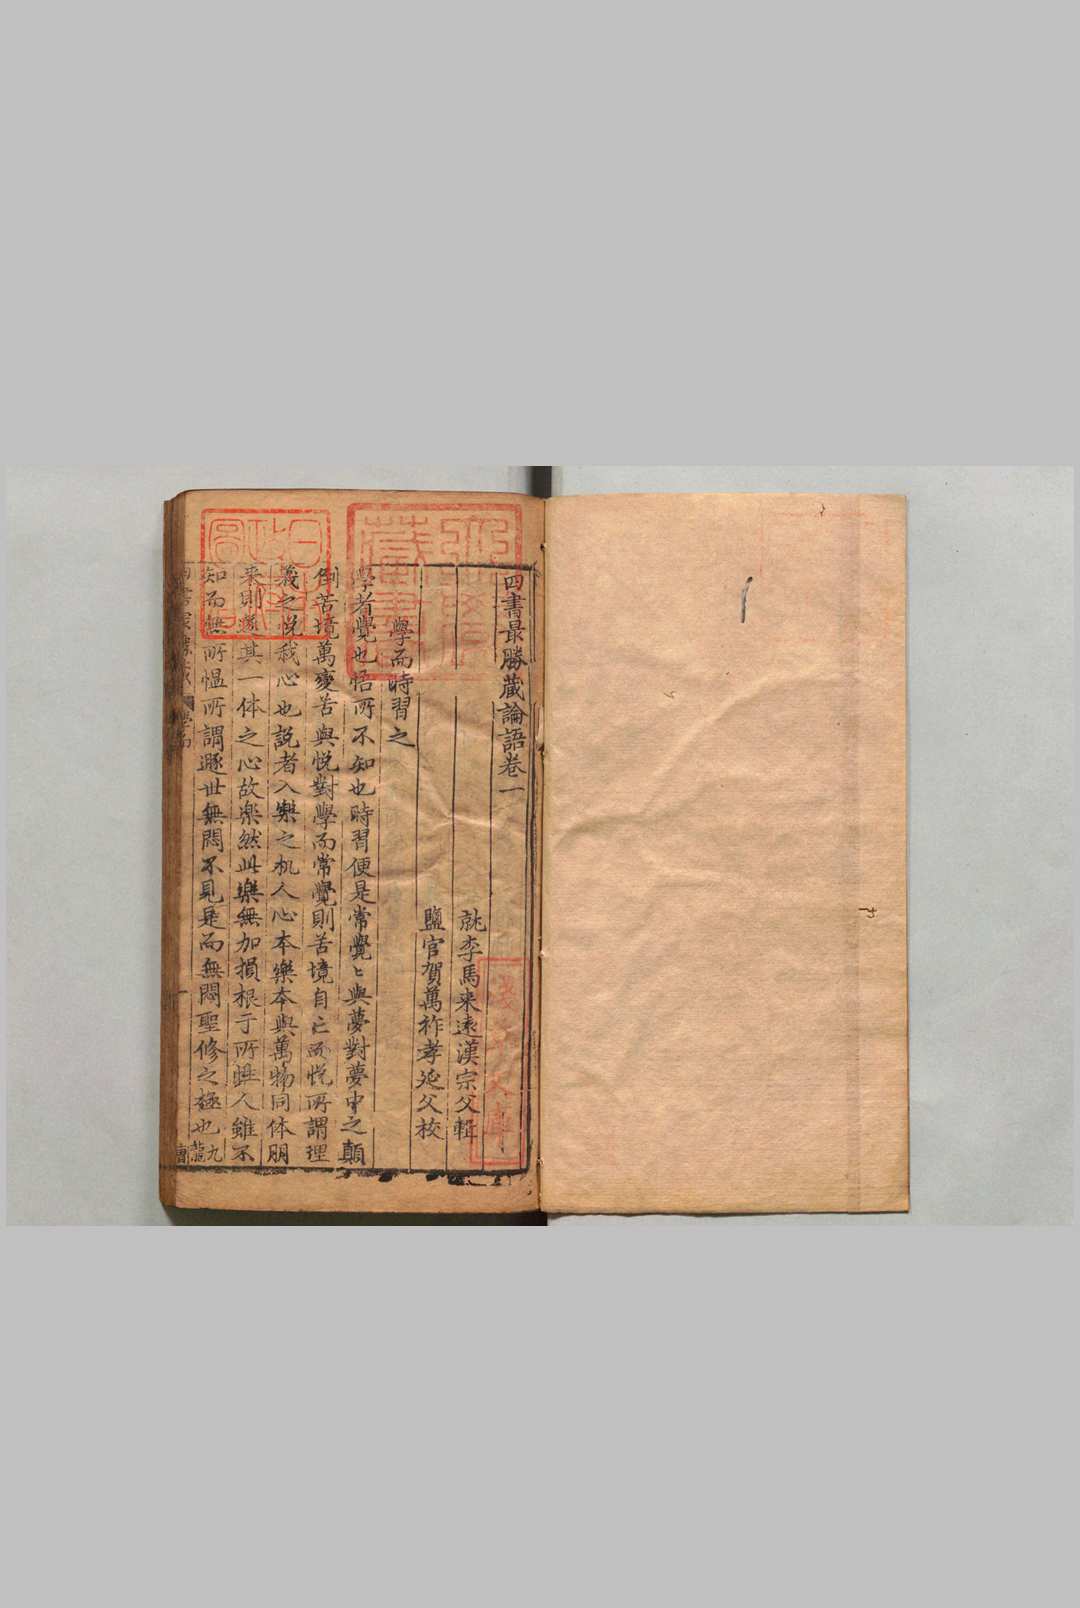 四書最勝藏論語卷一
就李馬来遠漢宗父輯
鹽官賀萬祚孝延父校
學而時習之
學者覺也悟所不知也時習便是常覺〻與夢對夢中之顛
倒苦境萬變苦與悅對學而常覺則苦境自亡而悅所謂理
義之悅我心也說者入樂之机人心本樂本與萬物同体朋
来則遂其一体之心故樂然此樂無加損根于所性人雖不
知而無所慍所謂遯世無悶不見是而無悶聖修之極也九龍
日本政圖
藏書
淺草文庫